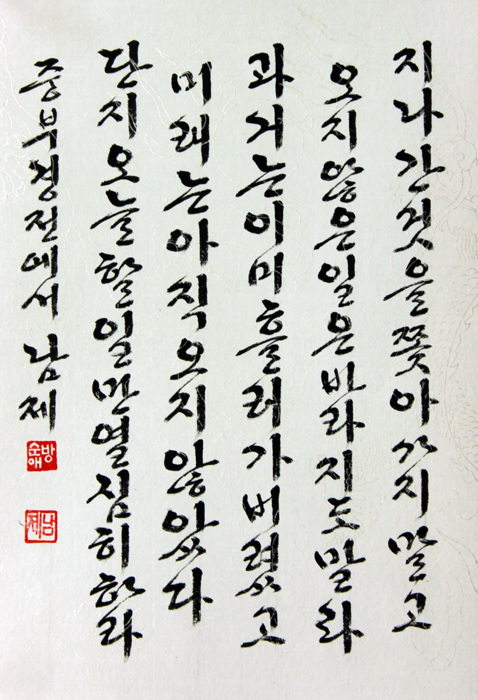 지나간것을쫓아가지말고
오지않은일은바라지도말라
과거는이미흘러가버렸고
미래는아직오지않았다
단지오늘할일만열심히하라
중부경전에서 남제